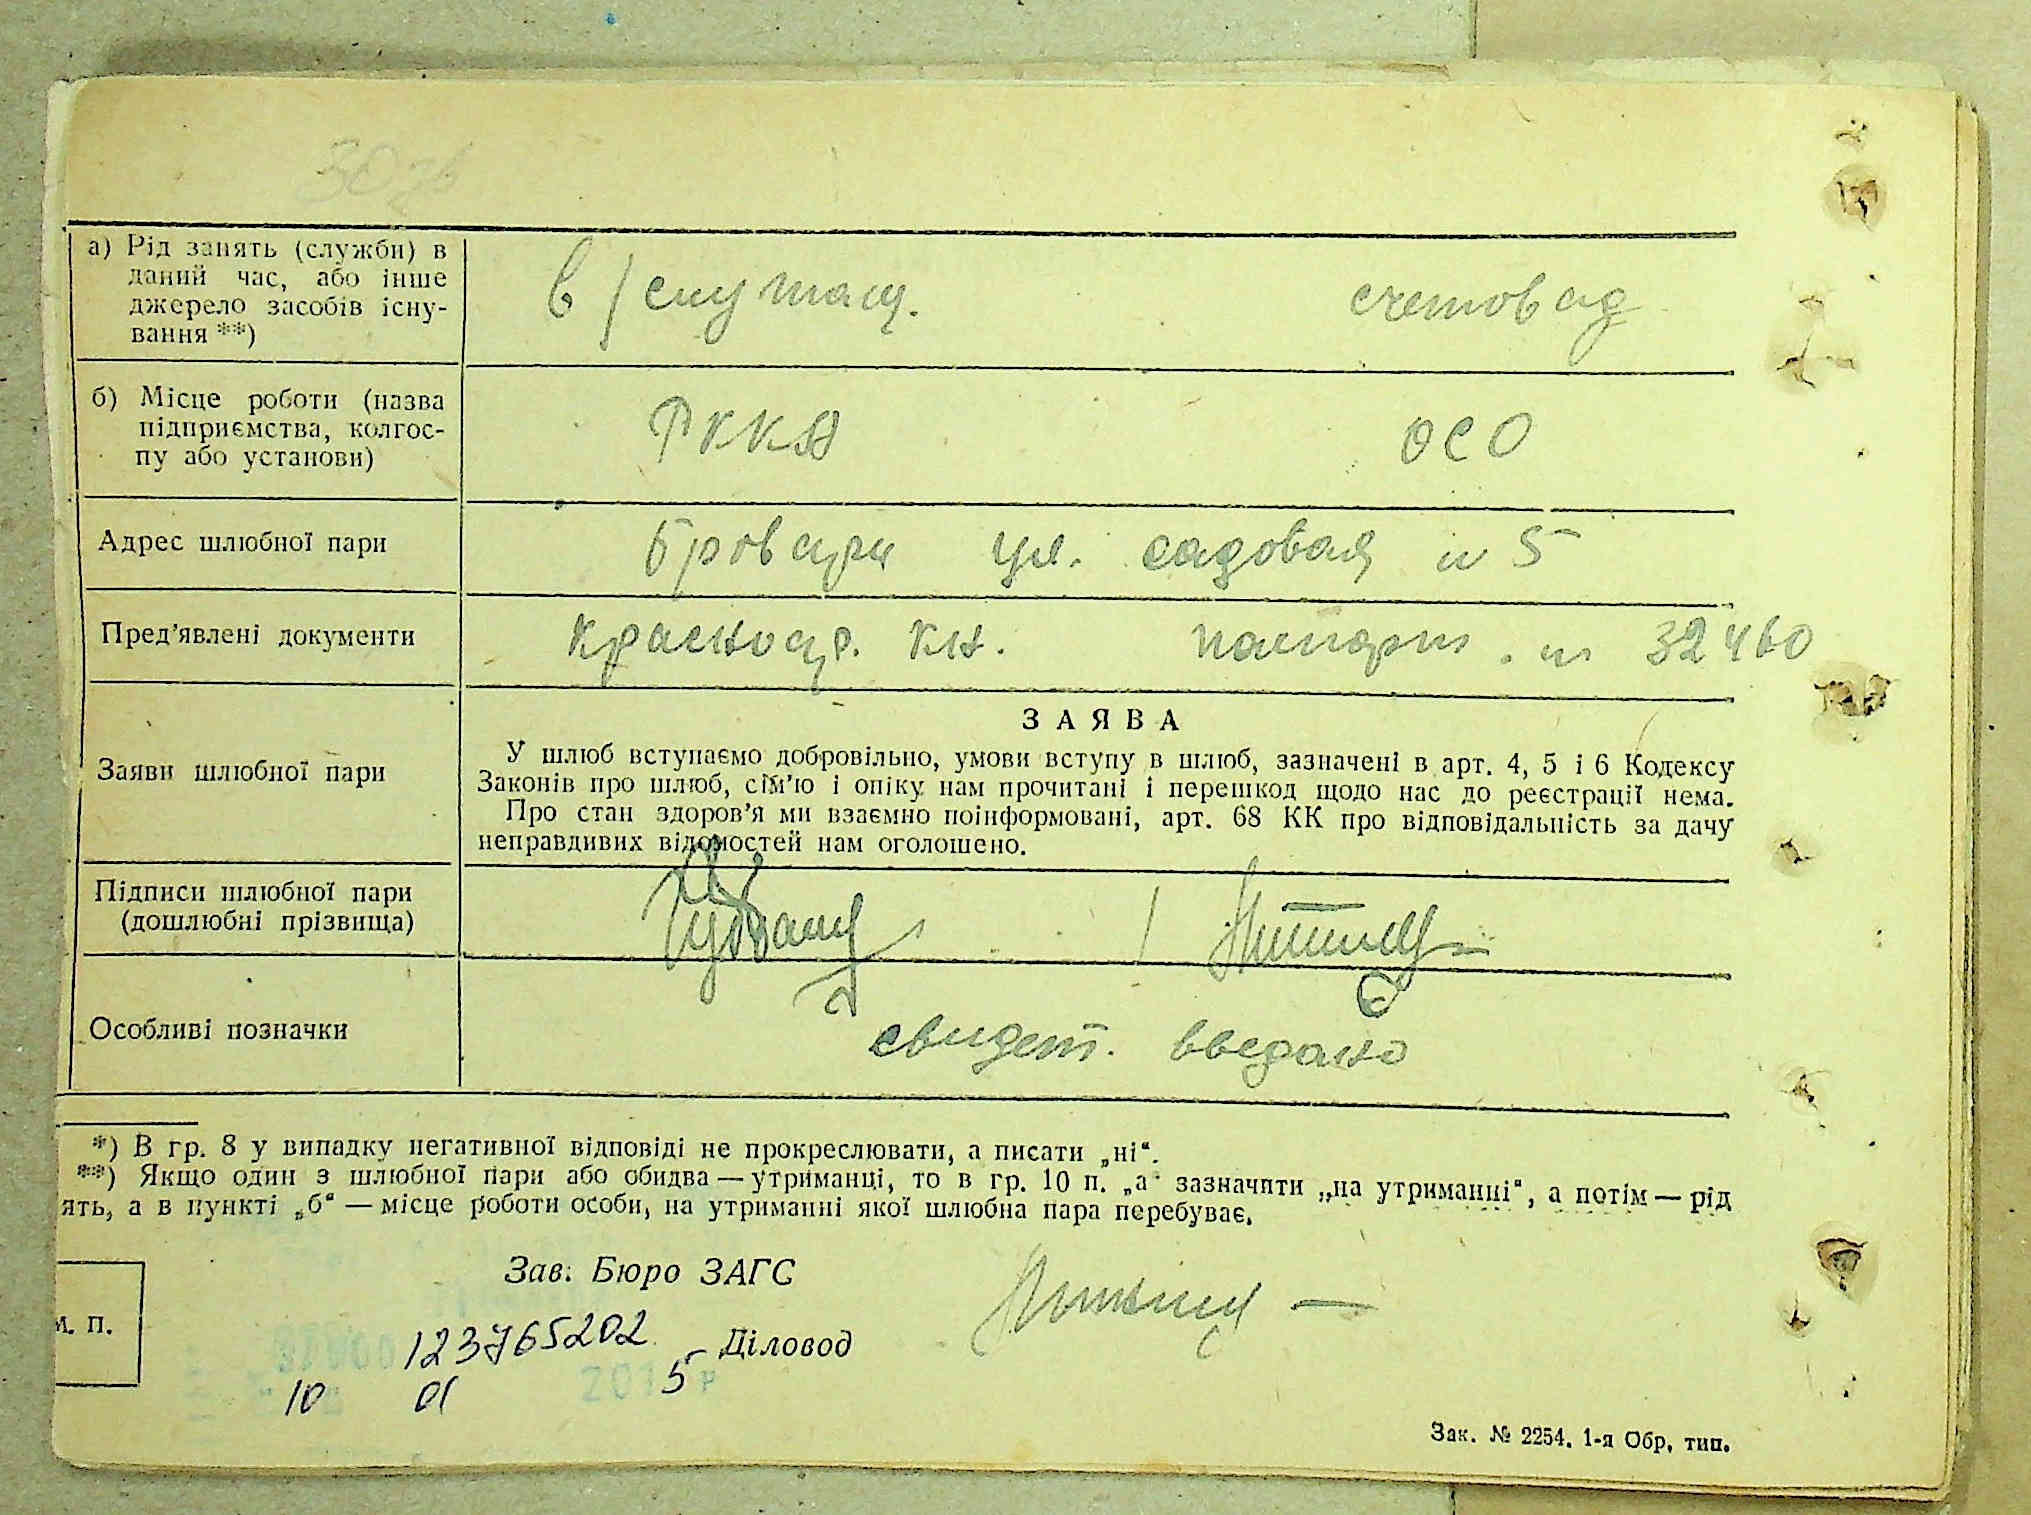 30 зв
а) Рід занять (служби) в
даний час, або інше
джерело засобів існу-
вання **)
в/служащ. счетовод
б) Місце роботи (назва
підприємства, колгос-
пу або установи)
РККА ОСО
Адрес шлюбної пари
Бровари ул. садовая н 5
Пред’явлені документи
красноар. кн. паспорт . н 32460
Заяви шлюбної пари
ЗАЯВА
У шлюб вступаємо добровільно, умови вступу в шлюб, зазначені в арт. 4, 5 і 6 Кодексу
Законів про шлюб, сім’ю і опіку нам прочитані і перешкод щодо нас до реєстрації нема.
Про стан здоров’я ми взаємно поінформовані, арт. 68 КК про відповідальність за дачу
неправдивих відомостей нам оголошено.
Підписи шлюбної пари
(дошлюбні прізвища)
Особливі позначки
свидет. введано
*) В гр. 8 у випадку негативної відповіді не прокреслювати, а писати „ні“.
**) Якщо один з шлюбної пари або обидва — утриманці, то в гр. 10 п. „а“ зазначити „на утриманні“, а потім — рід
ять, а в пункті „б“ — місце роботи особи, на утриманні якої шлюбна пара перебуває.
Зав. Бюро ЗАГС
М. П.
123765202
Діловод
10 01 2015 р
Зак. № 2254. 1-я Обр. тип.